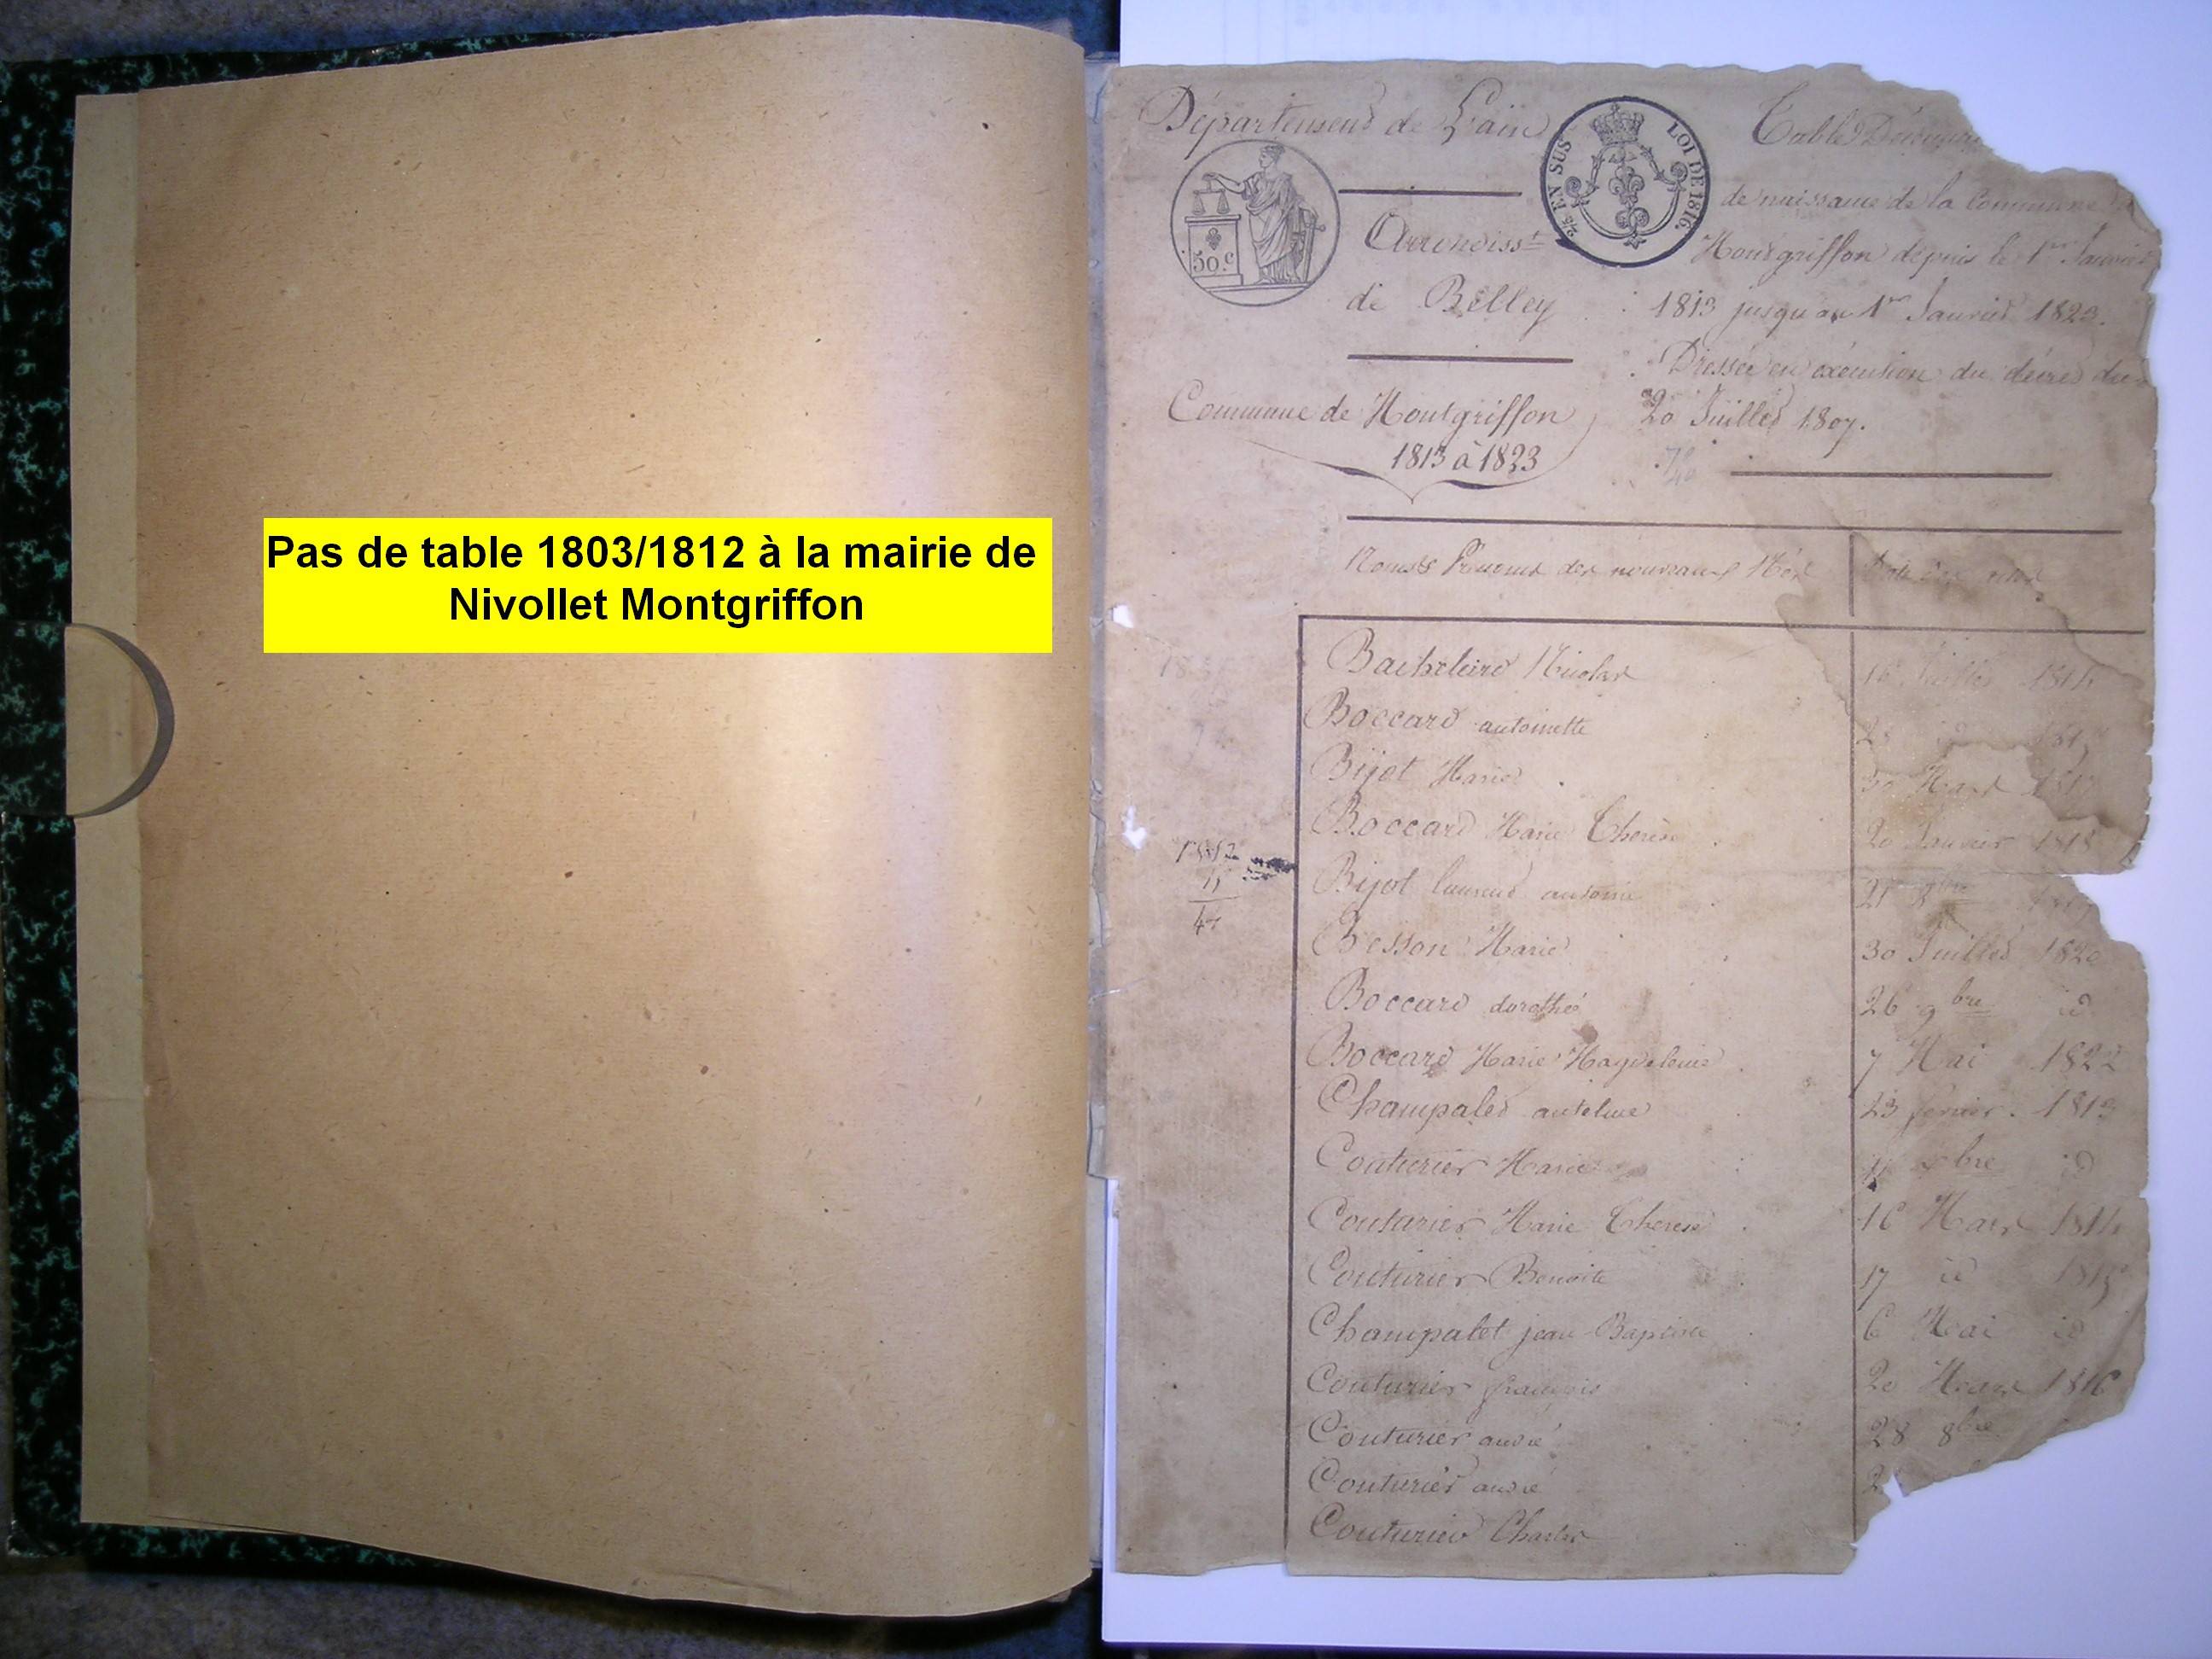 Pas de table 1803/1812 à la mairie de
Nivollet Montgriffon
Département de L'ain
50.c
2/5 EN SUS
LOI DE 1816.
Arrondisst
de Belley
Commune de Montgriffon
1813 à 1823
Table Décennale
de naissance de la Commune de
Montgriffon depuis le 1er Janvier
1813 jusqu'au 1er Janvier 1823.
Dressée en exécution du décret du
20 Juillet 1807.
Noms & Prénoms des nouveaux Nés
Date des
Bacheland Nicolas 16 Juillet 1814
Boccard antoinette 28 id
Bijot Marie 30 Mars 1817
Boccard Marie Therèse 20 Janvier 1818
Bijot laurent antoine 21
Besson Marie 30 Juillet 1820
Boccard dorothé 26 9bre id
Boccard Marie Magdeleine 7 Mai 1822
Champalet antelme 23 fevrier 1813
Couturier Marie 11 bre id
Couturier Marie Therese 16 Mars 1814
Couturier Benoite 17 id 1815
Champalet jean Baptiste 6 Mai id
Couturier françois 20 Mars 1816
Couturier andré 28 8bre
Couturier andré 2
Couturier Charles